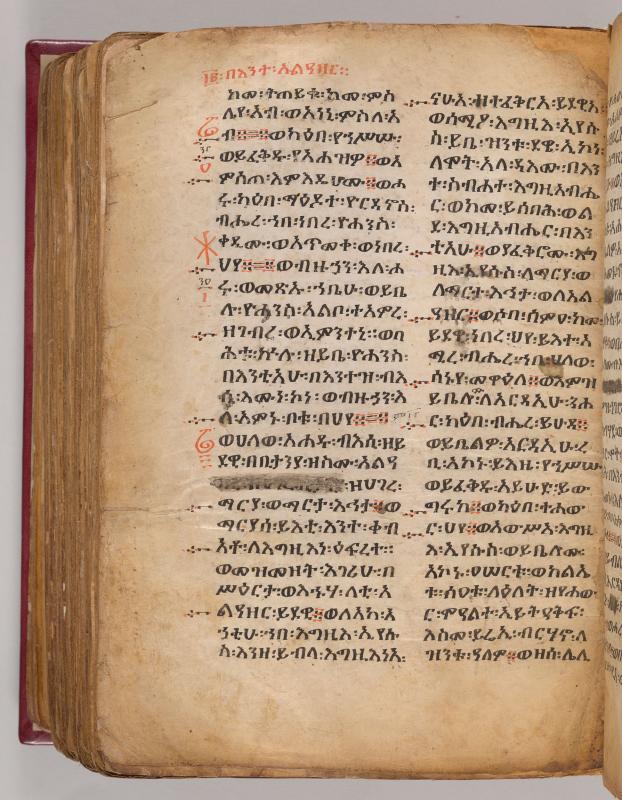 ፲፪፡በእንተ፡አልዓዛር፡፡
ከመ፡ትጠይቁ፡ከመ፡ምስ
ሌየ፡አብ፡ወአነኒ፡ምስለ፡አ
ብ፡፡ወካዕበ፡የኀሥሡ፡
ወይፈቅዱ፡የአኀዝዎ፡፡ወእ
ምስጠ፡እምእዴሆሙ፡፡ወሖ
ረ፡ካዕበ፡ማዕዶተ፡ዮርዳኖስ፡
ብሔረ፡ኀበ፡ነበረ፡ዮሐንስ፡
ቀዲሙ፡ወአጥመቀ፡ወነበረ፡
ህየ፡፡ወብዙኃን፡እለ፡ሖ
ሩ፡ወመጽኡ፡ኀቤሁ፡ወይቤ
ሉ፡ዮሐንስ፡አልቦ፡ተአምረ፡
ዘገብረ፡ወኢምንተኒ፡፡ወባ
ሕቱ፡ኵሉ፡ዘይቤ፡ዮሐንስ፡
በእንቲአሁ፡በእንተዝ፡ብእ
ሲ፡እሙነ፡ኮነ፡ወብዙኃን፡እ
ለ፡አምኑ፡በቱ፡በህየ፡፡
ወሀለወ፡አሐዱ፡ብእሲ፡ዘይ
ደዊ፡በቢታንያ፡ዘስሙ፡አልዓ
ዘሀገረ፡
ማርያ፡ወማርታ፡እኅታ፡፡ወ
ማርያሰ፡ይእቲ፡እንተ፡ቀብ
አቶ፡ለእግዚእነ፡ዕፍረተ፡፡
ወመዝመዘት፡እገሪሁ፡በ
ሥዕርታ፡ወእኁሃ፡ለቲ፡አ
ልዓዛር፡ይደዊ፡፡ወለአካ፡አ
ኃቲሁ፡ኀበ፡እግዚእ፡ኢየሱ
ስ፡እንዘ፡ይብላ፡እግዚእነ፡
ናሁ፡ዘታፈቅር፡ይደዊ፡
ወሰሚዖ፡እግዚእ፡ኢየሱ
ስ፡ይቤ፡ዝንቱ፡ደዌ፡ኢኮነ፡
ለሞት፡አላ፡ዳእሙ፡በእን
ተ፡ስብሐተ፡እግዚአብሔ
ር፡ወከመ፡ይሰባሕ፡ወል
ደ፡እግዚአብሔር፡በእን
ቲአሁ፡፡ወያፈቅሮሙ፡እግ
ዚእ፡ኢየሱስ፡ለማርያ፡ወ
ለማርታ፡እኅታ፡ወለአል
ዓዛር፡፡ወሶበ፡ሰምዐ፡ከመ፡
ይደዊ፡ነበረ፡ህየ፡ክልኤተ፡
መዋዕለ፡፡ወእምዝ፡
ይቤሎሙ፡ለአርዳኢሁ፡ንሖ
ር፡ካዕበ፡ብሔረ፡ይሁዳ፡፡
ወይቤልዎ፡አርዳኢሁ፡ረ
ቢ፡አኮኑ፡ይእዜ፡የኀሥሡ
ወይፈቅዱ፡አይሁድ፡ይው
ግሩከ፡፡ወካዕበ፡ተሐው
ር፡ህየ፡፡ወአውሥአ፡እግዚ
እ፡ኢየሱስ፡ወይቤሎሙ፡
አኮኑ፡ዐሠርቱ፡ወክልኤ
ቱ፡ሰዐቱ፡ለዕለት፡ዘየሐው
ር፡መዓልተ፡ኢይትዓቀፍ፡
እስመ፡ይሬኢ፡ብርሃኖ፡ለ
ዝንቱ፡ዓለም፡፡ወዘሰ፡ሌሊ